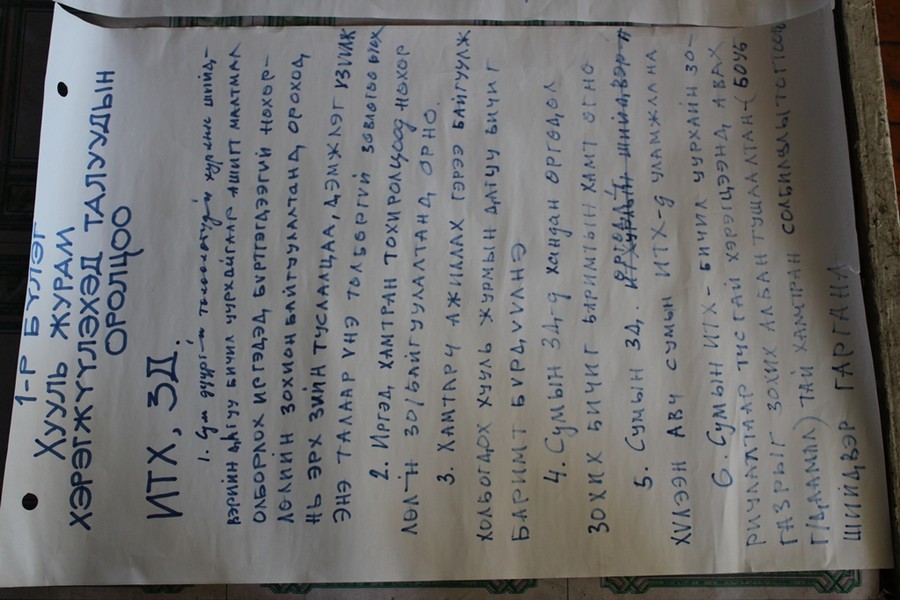 1-Р БҮЛЭГ
ХУУЛЬ ЖУРАМ
ХЭРЭГЖҮҮЛЭХЭД ТАЛУУДЫН
ОРОЛЦОО
ИТХ, ЗД.
1. Сум дүүргийн
ВЭРИЙН ДАГУУ БИЧИЛ УУРХАЙГААР АШИГТ МАЛТМАЛ
ОЛБОРЛОХ ИРГЭДЭД БҮРТГЭГДЭЭГҮЙ НӨХӨР-
ЛӨЛИЙН ЗОХИОН БАЙГУУЛАЛТАНД ОРОХОД
НЬ ЭРХ ЗҮЙН ТУСЛАЛЦАА, ДЭМЖЛЭГ ҮЗҮҮЛЖ
ЭНЭ ТАЛААР ҮНЭ ТӨЛБӨРГҮЙ ЗӨВЛӨГӨӨ ӨГӨХ
2. ИРГЭД ХАМТРАН ТОХИРОЛЦООД НӨХӨР
ЛӨЛ-Н ЗО/БАЙГУУЛАЛТАНД ОРНО.
3. ХАМТАРЧ АЖИЛЛАХ ГЭРЭЭ БАЙГУУЛЖ
ХОЛБОГДОХ ХУУЛЬ ЖУРМЫН ДАГУУ БИЧИГ
БАРИМТ БҮРДҮҮЛНЭ
4. СУМЫН ЗД-Д ХАНДАН ӨРГӨДӨЛ
ЗОХИХ БИЧИГ БАРИМТЫН ХАМТ ӨГНӨ
5. СУМЫН ЗД. ӨРГӨДӨЛ
ХҮЛЭЭН АВЧ СУМЫН ИТХ-Д УЛАМЖЛАНА
6. СУМЫН ИТХ - БИЧИЛ УУРХАЙН ЗО-
РИУЛАЛТААР ТУСГАЙ ХЭРЭГЦЭЭНД АВАХ
ГАЗРЫГ ЗОХИХ АЛБАН ТУШААЛТАН-( БОУБ
Г/ДААМАЛ) ТАЙ ХАМТРАН СОЛБИЦЛЫГ ТОГТООЖ
ШИЙДВЭР ГАРГАНА